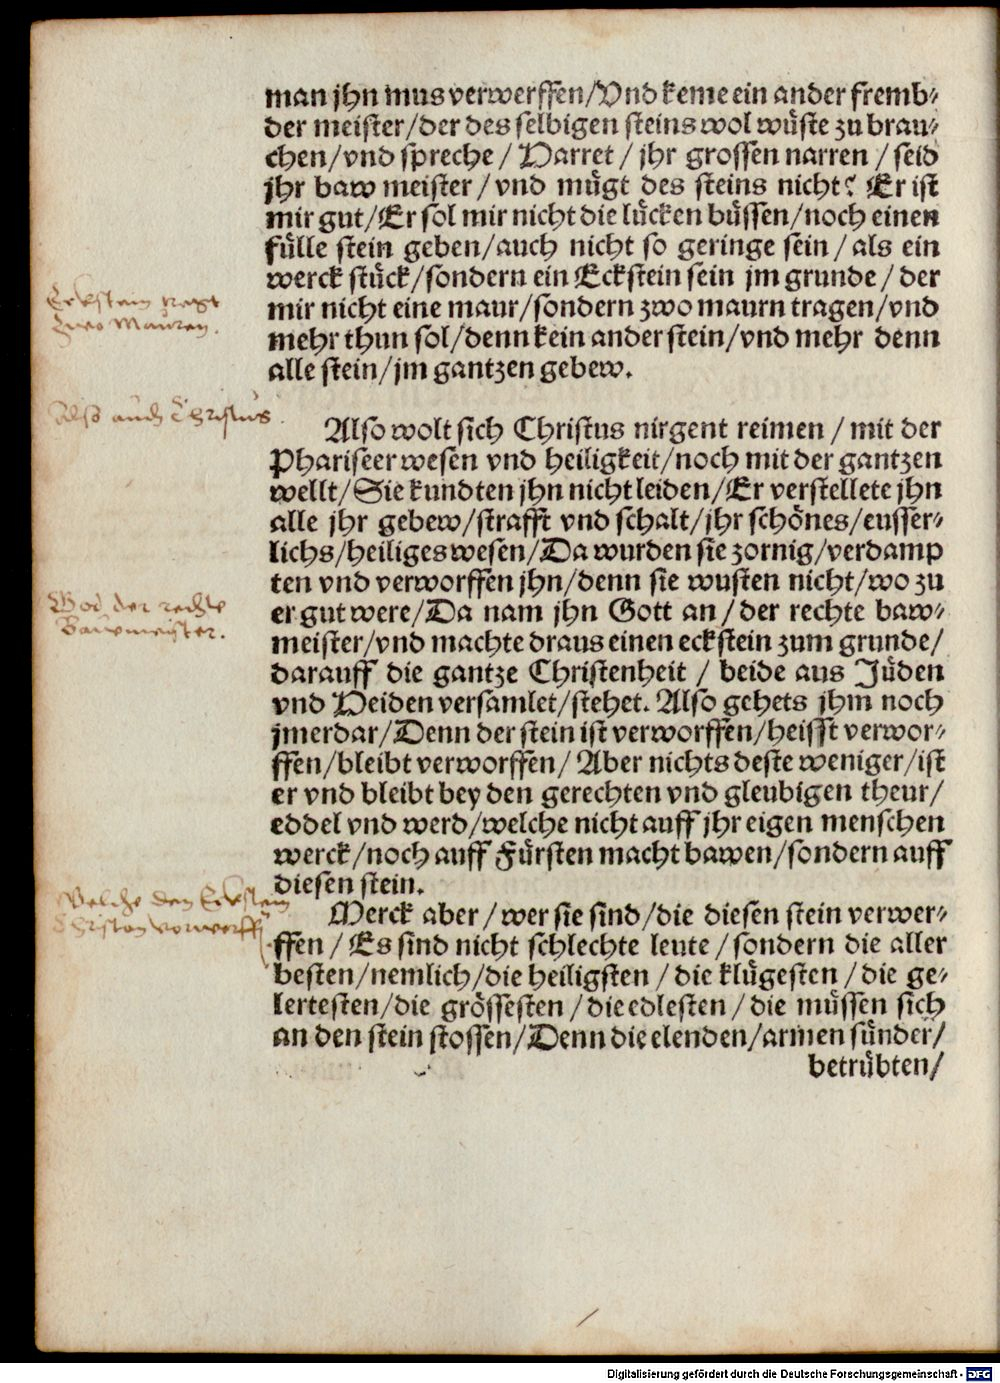 man jhn mus verwerffen/Vnd keme ein ander fremb⸗
der meister/der des selbigen steins wol wüste zu brau⸗
chen/vnd spreche / Harret / jhr grossen narren / seid
jhr baw meister / vnd mügt des steins nicht? Er ist
mir gut/Er sol mir nicht die lücken büssen/noch einen
fülle stein geben/auch nicht so geringe sein / als ein
werck stück/sondern ein Eckstein sein jm grunde / der
mir nicht eine maur/sondern zwo maurn tragen/vnd
mehr thun sol/denn kein ander stein/vnd mehr denn
alle stein/jm gantzen gebew.
Eckstein tregt
zwo Mauren.
Also auch Christus.
Also wolt sich Christus nirgent reimen / mit der
Phariseer wesen vnd heiligkeit/noch mit der gantzen
wellt/Sie kundten jhn nicht leiden/Er verstellete jhn
alle jhr gebew/strafft vnd schalt/jhr schönes/eusser⸗
lichs/heiliges wesen/Da wurden sie zornig/verdamp
ten vnd verworffen jhn/denn sie wusten nicht/wo zu
er gut were/Da nam jhn Gott an / der rechte baw⸗
meister/vnd machte draus einen eckstein zum grunde/
darauff die gantze Christenheit / beide aus Jüden
vnd Heiden versamlet/stehet. Also gehets jhm noch
jmerdar/Denn der stein ist verworffen/heisst verwor⸗
ffen/bleibt verworffen/ Aber nichts deste weniger/ist
er vnd bleibt bey den gerechten vnd gleubigen theur/
eddel vnd werd/welche nicht auff jhr eigen menschen
werck/noch auff Fürsten macht bawen/sondern auff
diesen stein.
Got der rechte
Bauwmeister.
Welche den Eckstein
Christon vorwerff
Merck aber / wer sie sind/die diesen stein verwer⸗
ffen / Es sind nicht schlechte leute / sondern die aller
besten/nemlich/die heiligsten / die klügesten / die ge⸗
lertesten/die grössesten / die edlesten / die müssen sich
an den stein stossen/Denn die elenden/armen sünder/
betrübten/
Digitalisierung gefördert durch die Deutsche Forschungsgemeinschaft - DFG